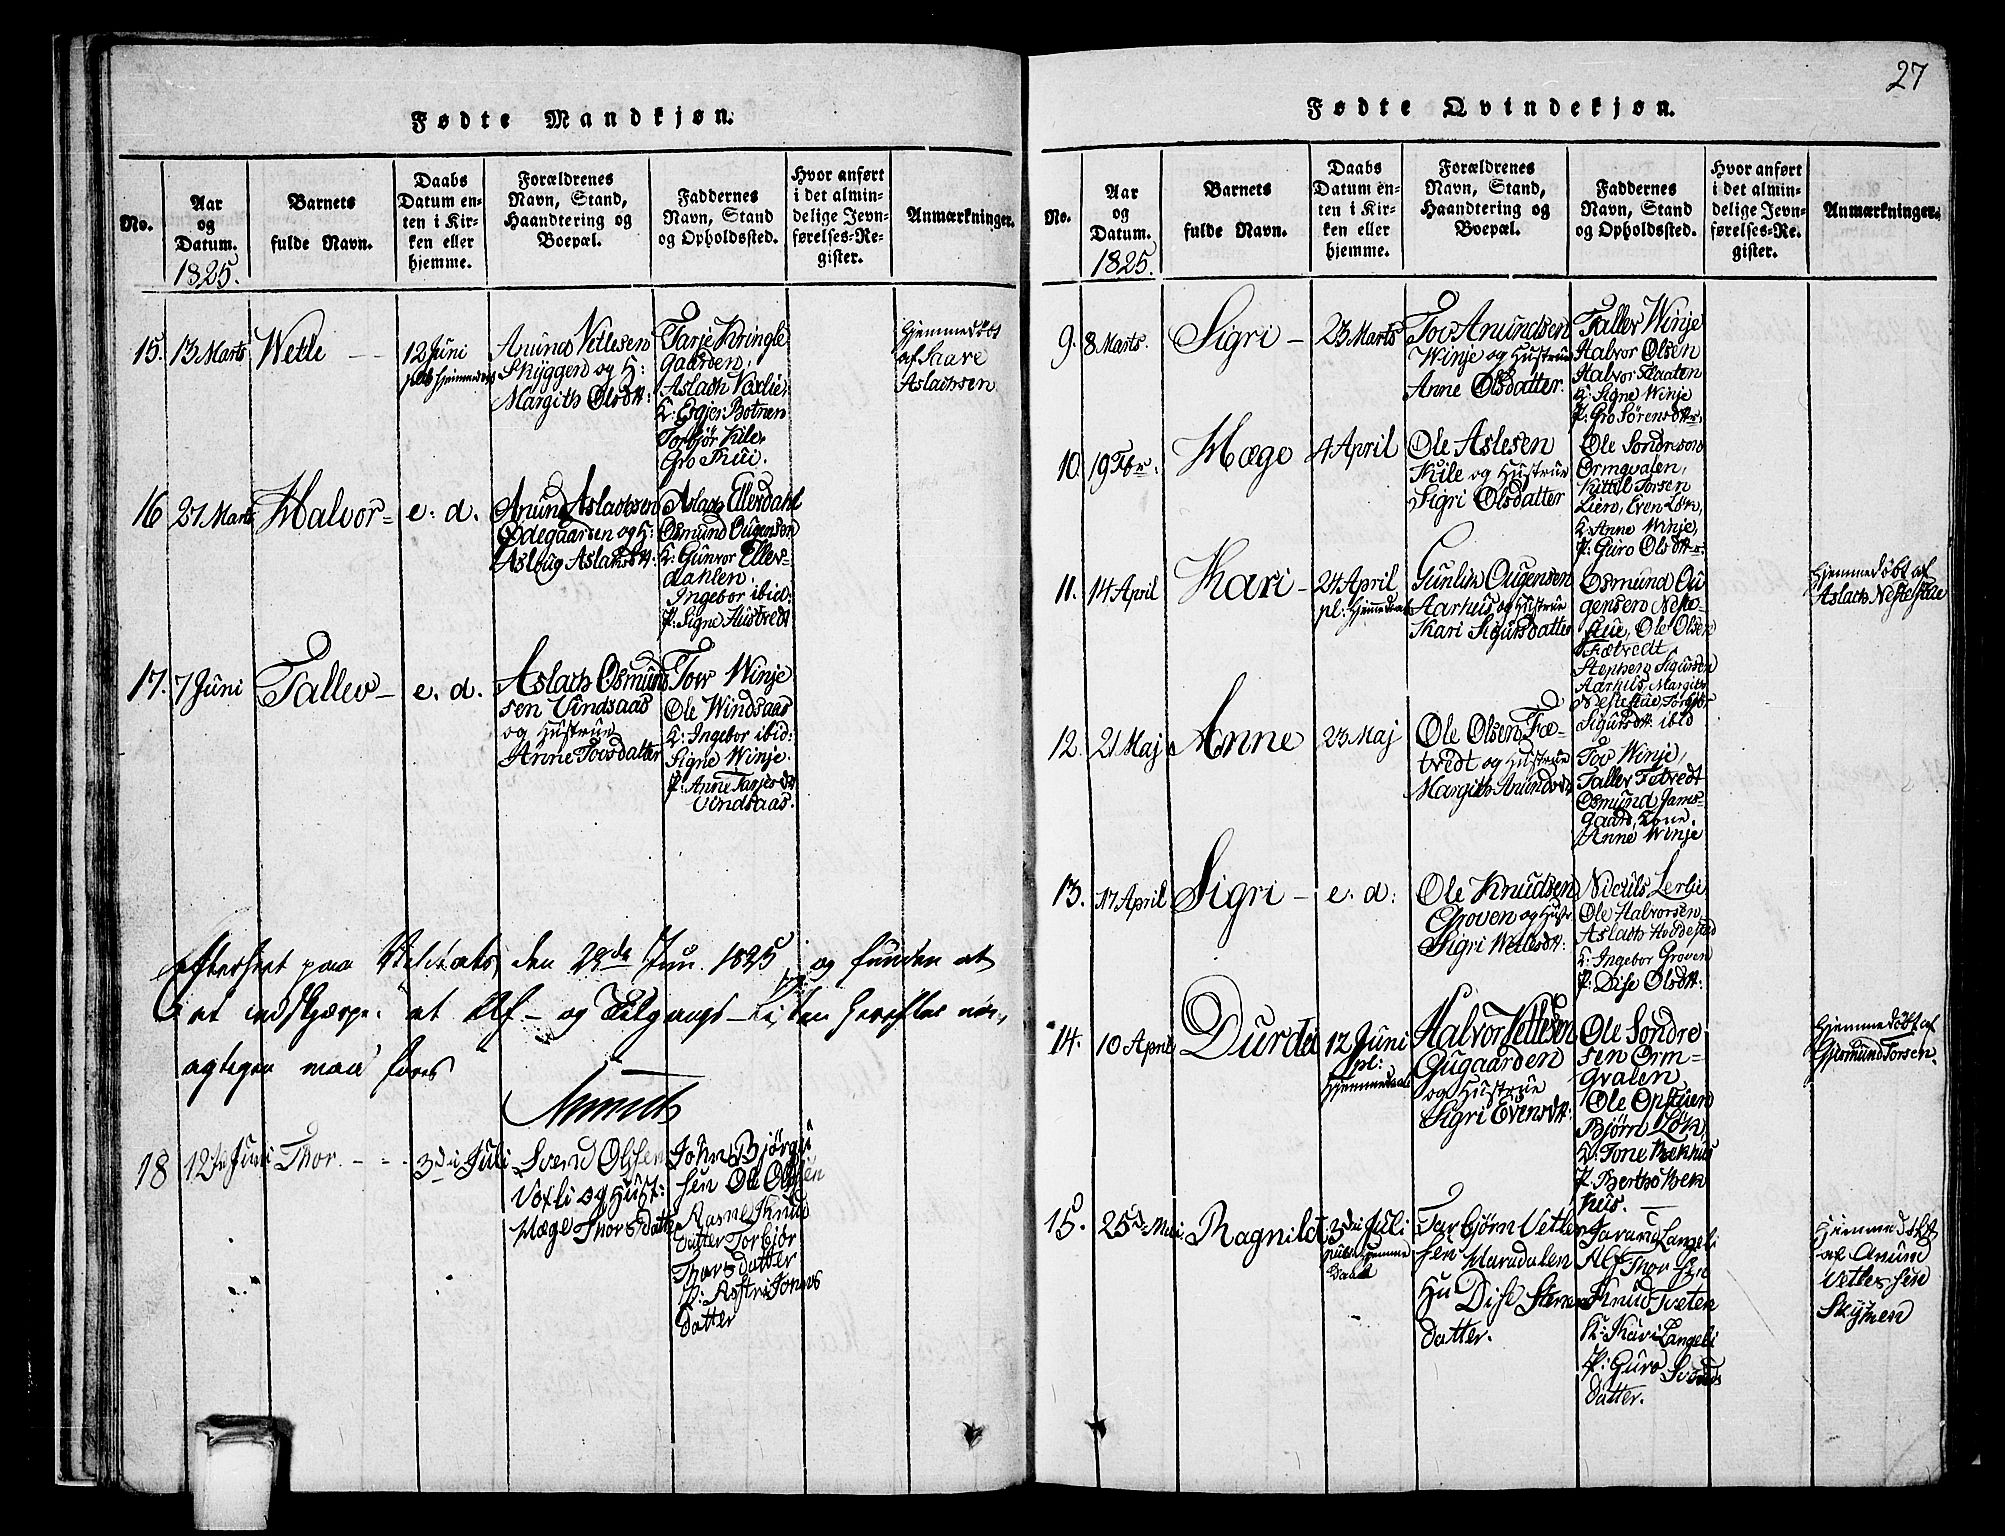 Fødte Mandkjøn.
No.
Aar
og
Datum.
1825.
Barnets
fulde Navn.
Daabs
Datum en-
ten i Kir-
ken eller
hjemme.
Forældrenes
Navn, Stand,
Haandtering og
Boepæl.
Faddernes
Navn, Stand
og Opholdssted.
Hvor anført
i det almin-
delige Jevn-
førelses-Re-
gister.
Anmærkninger.
15.
13 Marts
Wetle
12 Juni
Anund Vetlesen
Skyggen og H:
Margith Olsdtr:
Tarje Kringle
gaarden,
Aslach Vaxlie
Torbjør Kile,
Gro
Hjemmedøbt
af
Aslachsen
16
27 Marts
Halvor
e. d.
Anund Aslachsen
Ødegaarden og H:
Aslaug Aslaksdtr:
Aslach Ellerdahl
Osmund Ougensen
K: Gunvor Eller-
dahlen,
Ingebor ibid:
P: Signe
17.
7 Juni
Tallev
e. d.
Aslach Osmund
sen Vindsaas
og Hustrue
Anne Tovsdatter
Tow Winje
Ole Windsaas
K: Ingebor ibid:
Signe Winje.
P: Anne Tarjesdtr
Vindsaas.
Efterseet paa Visitats, den 1825 og funden at
at indskjærpe, at Af- og Tilgangs-Listen herefter
agtigen maa føres
18
12te Juni
Thor
3die Juli
Svend Olssen
Voxli og Hust:
Mæge Thorsdatter
John Bjørgu
sen Ole Olsen
Knud
datter Torbjør
Thorsdatter
P: Astri Jons
datter
27
Fødte Qvindekjøn.
No.
Aar
og
Datum.
1825.
Barnets
fulde Navn.
Daabs
Datum en-
ten i Kir-
ken eller
hjemme.
Forældrenes
Navn, Stand,
Haandtering og
Boepæl.
Faddernes
Navn, Stand
og Opholdssted.
Hvor anført
i det almin-
delige Jevn-
førelses-Re-
gister.
Anmærkninger.
9.
8 Marts.
Sigri
23 Marts
Tov Anundsen
Winje og Hustrue
Anne Olsdatter
Tallev Winje
Halvor Olsen
Halvor
K: Signe Winje
P: Gro Sørensdtr
10.
19 Fbr.
Mæge
4 April
Ole Aslesen
Kile og Hustrue
Sigri Olsdatter
Ole Sondresen
Ormgvalen,
Kittil Torsen
Liero, Even Løn,
K: Anne Winje,
P: Guro Olsdtr
11.
14 April
Kari
24 April
pl: Hjemmedaab
Gunlin Ougensen
Aarhus og Hustrue
Kari Sigursdatter
Osmund Ou
gensen Neste-
stue, Ole Olsen
Fætvedt
Stenberg Sigursen
Aarhus, Margith
Nestestue, Torbjør
Sigursdtr: ibid
Hjemmedøbt af
Aslach Nestestue
12.
21 Maj
Anne
23 Maj
Ole Olsen Fæ-
tvedt og Hustrue
Margith Anundsdtr
Tov Winje,
Tallev Fætvedt
Osmund Jams-
gaard, Kone.
Anne Winje
13.
17 April
Sigri
e. d:
Ole Knudsen
Groven og Hustr
Sigri Wetlesdtr:
Nicuils Lerli
Ole Halvorsen,
Aslach
K: Ingebor Groven
P: Dise Olsdtr:
14.
10 April
Durdei
12 Juni
pl:
Hjemmedaab
Halvor Vetlesen
Gugaarden
og Hustrue
Sigri Evensdtr:
Ole Sondre
sen Orm-
gvalen
Ole Opstuen
Bjørn Løn,
K: Tone Bækhus
P: Bertho Bek
hus.
Hjemmedøbt af
Gjermund Torsen.
15.
25de Mai
Ragnild
3die Juli
Hjemme
daab
Tarbjørn Vetle
sen Marsdalen
Hu Dise
datter.
Langeli
Alf Thor
Knud Tveten
K: Kari Langeli
P: Guro Svends
datter.
Hjemmedøbt
af Anund
Vetlessen
Skyggen